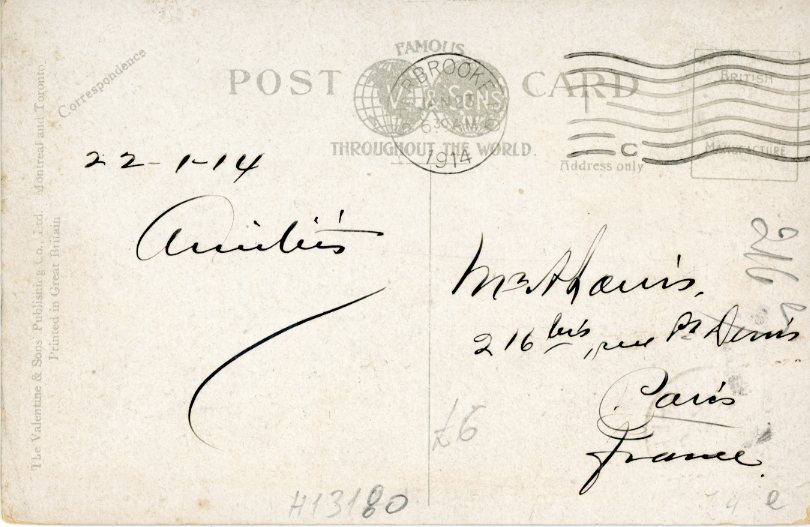 FAMOUS
POST CARD
V & SONS
THROUGHOUT THE WORLD.
BROOKE
630 AM
1914
C
BRITISH
MANUFACTURE
Address only
Correspondence
The Valentine & Sons Publishing Co., Ltd. Montreal and Toronto
Printed in Great Britain
22-1-14
Amitiés
216 bis, rue St Denis
Paris
France.
216
£6
H13180
e